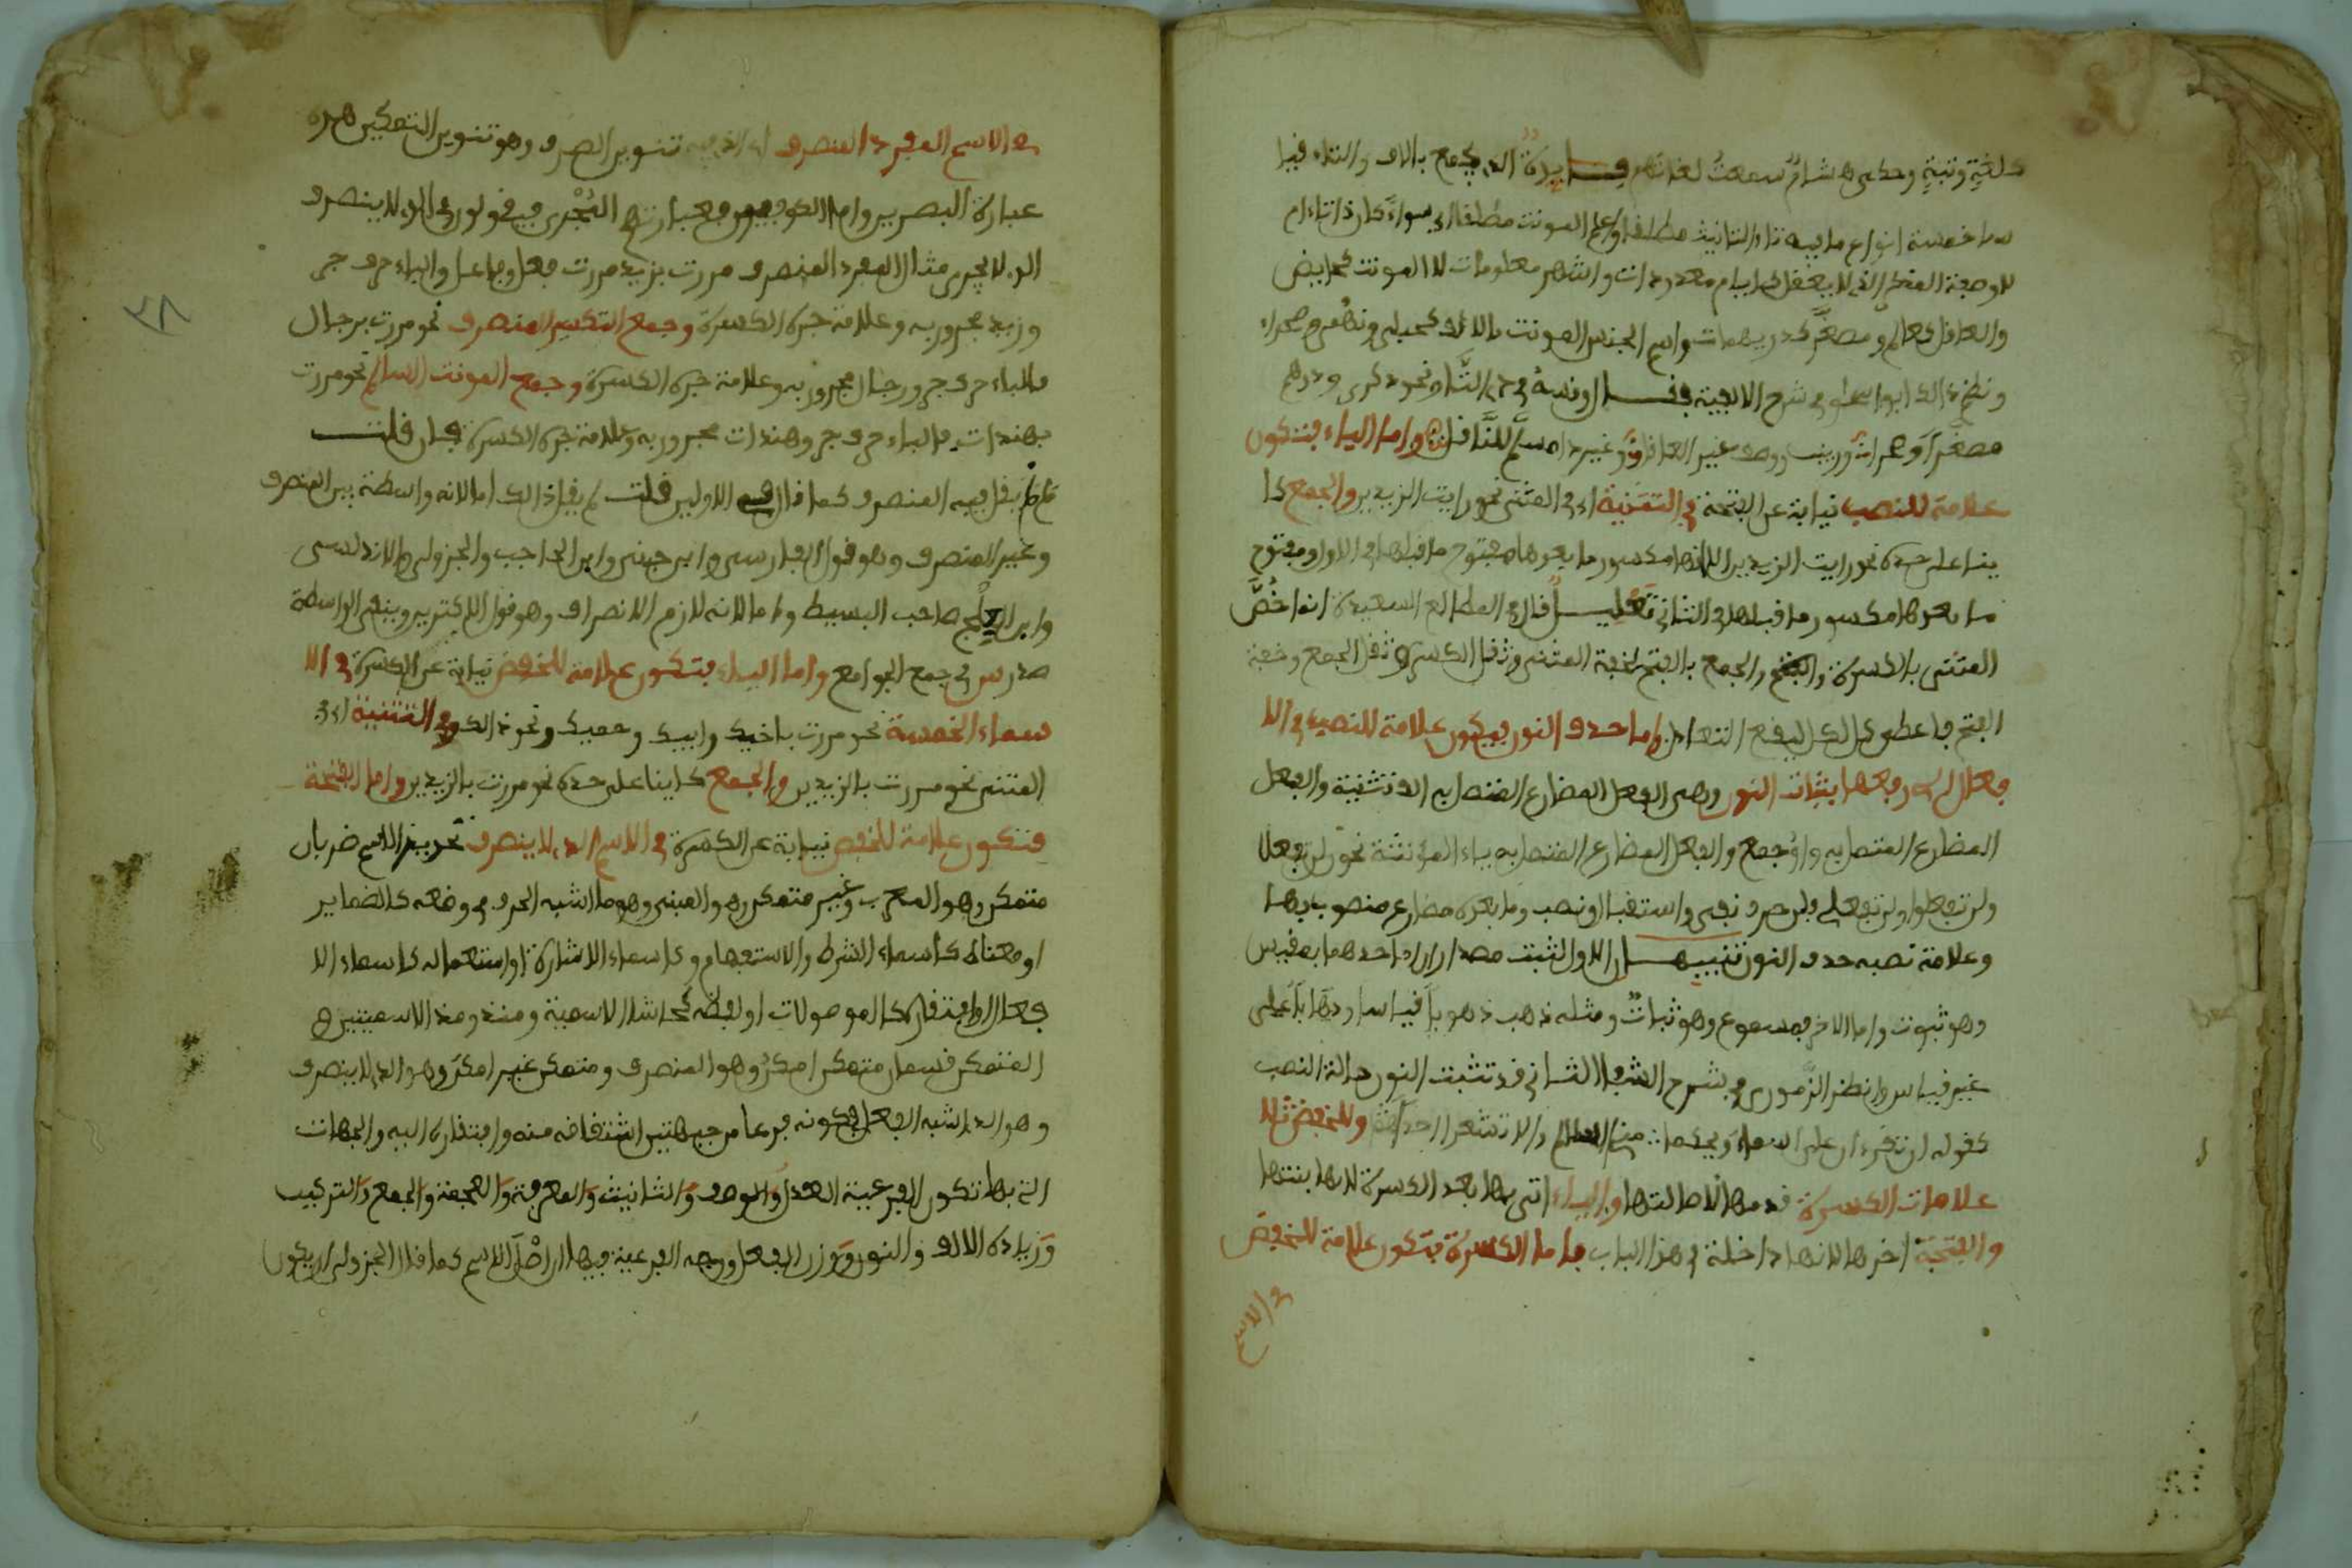 كلغةٍ وثبةٍ وحكى هشام سمعتُ لغاتهم فايدة الذي يجمع بالالف والتاء قياسا
خمسة انواع ما فيه تاء التانيث مطلقا وعلم المونث مطلقا اي سواء كان ذا تاء ام
لا وصفة المذكر الذي لا يعقل كايام معدودات واشهر معلومات لا المونث كحايض
والعاقل كعالم ومصغر كدريهمات واسم الجنس المونث بالالف كحبلى وبهمى وصحراء
ونظم ذالك ابو اسحاق في شرح الالفية فقال وقسه في ذي التا ونحو ذكرى ودرهم
مصغر وصحراء وزينب ووصف غير العاقل وغير ذا مسلم للناقل واما الياء فتكون
علامة للنصب نيابة عن الفتحة في التثنية اي في المثنى نحو رايت الزيدين والجمع كا
ينا على حده نحو رايت الزيدين الا انها مكسور ما بعدها مفتوح ما قبلها في الاول ومفتوح
ما بعدها مكسور ما قبلها في الثاني تعليل قال في الطالع السعيدة انما خُصَّ
المثنى بالكسرة والجمع بالفتح لخفة المثنى وثقل الكسرة وثقل الجمع وخفة
الفتح فاعطي كل لكل ليقع التعادل واما حذف النون فيكون علامة للنصب في الا
فعال التي رفعها بثبات النون وهي الفعل المضارع المتصل به الف تثنية والفعل
المضارع المتصل به واو جمع والفعل المضارع المتصل به ياء المونثة نحو لن تفعلا
ولن تفعلوا ولن تفعلي فلن حرف نفي واستقبال ونصب وما بعده مضارع منصوب بها
وعلامة نصبه حذف النون تنبيهان الاول لثبت مصدران احدهما مقيس
وهو ثبوت واما الاخر فمسموع وهو ثباتٌ ومثله ذهب ذهوباً قياسا وذهاباً على
غير قياس وانظر الزموري في شرح الشفا الثاني قد تثبت النون حالة النصب
كقوله ان تقرءان على اسماء ويحكما مني السلام والا تشعرا احدا وللخفض ثلا
علامات الكسرة قدمها لاصالتها والياء اتى بها بعد الكسرة لانها بنتها
والفتحة اخرها لانها داخلة في هذا الباب فاما الكسرة فتكون علامة للخفض
في الاسم
في الاسم المفرد المنصرف اي الذي فيه تنوين الصرف وهو تنوين التمكين هذه
عبارة البصريين واما الكوفيون فعبارتهم المُجْرى فيقولون في الذي لا ينصرف
الذي لا يجرى مثال المفرد المنصرف مررت بزيد مررت فعل وفاعل والباء حرف جر
وزيد مجرور به وعلامة جره الكسرة وجمع التكسير المنصرف نحو مررت برجال
فالباء حرف جر ورجال مجرور به وعلامة جره الكسرة وجمع المونث السالم نحو مررت
بهندات فالباء حرف جر وهندات مجرور به وعلامة جره الكسرة فان قلت
لم لم يقل فيه المنصرف كما قال في الاولين قلت لم يقل ذالك اما لانه واسطة بين المنصرف
وغير المنصرف وهو قول الفارسي وابن جني وابن الحاجب والجزولي والاندلسي
وابن العلج صاحب البسيط واما لانه لازم الانصراف وهو قول الاكثرين وبنفي الواسطة
صدر س في جمع الجوامع واما الياء فتكون علامة للخفض نيابة عن الكسرة في الا
سماء الخمسة نحو مررت باخيك وابيك وحميك ونحو ذالك وفي التثنية اي في
المثنى نحو مررت بالزيدين والجمع كاينا على حده نحو مررت بالزيدين واما الفتحة
فتكون علامة للخفض نيابة عن الكسرة في الاسم الذي لا ينصرف تحرير الاسم ضربان
متمكن وهو المعرب وغير متمكن وهو المبني وهو ما اشبه الحرف في وضعه كالضماير
او معناه كاسماء الشرط والاستفهام وكاسماء الاشارة او استعماله كاسماء الا
فعال او افتقاره كالموصولات او لفظه كحاشا الاسمية ومنذ ومذ الاسميتين و
المتمكن قسمان متمكن امكن وهو المنصرف ومتمكن غير امكن وهو الذي لا ينصرف
وهو الذي اشبه الفعل بكونه فرعا من جهتين اشتقاقه منه وافتقاره اليه والجهات
التي بها تكون الفرعية العدل والوصف والتانيث والمعرفة والعجمة والجمع والتركيب
وزيادة الالف والنون ووزن الفعل ووجه الفرعية فيها ان اصل الاسم كما قال الجزولي ان يكون